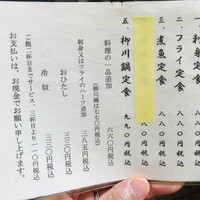 一、刺身定食
二、フライ定食
三、煮魚定食 八八〇円税込
八八〇円税込
五、柳川鍋定食 九九〇円税込
料理の一品追加 六六〇円税込
(柳川鍋は七七〇円税込)
刺身又はフライのハーフ追加 三八五円税込
おひたし 三三〇円税込
冷奴 三三〇円税込
ご飯二杯目までサービス、三杯目より一一〇円税込
お支払いは、お現金でお願い申し上げます。